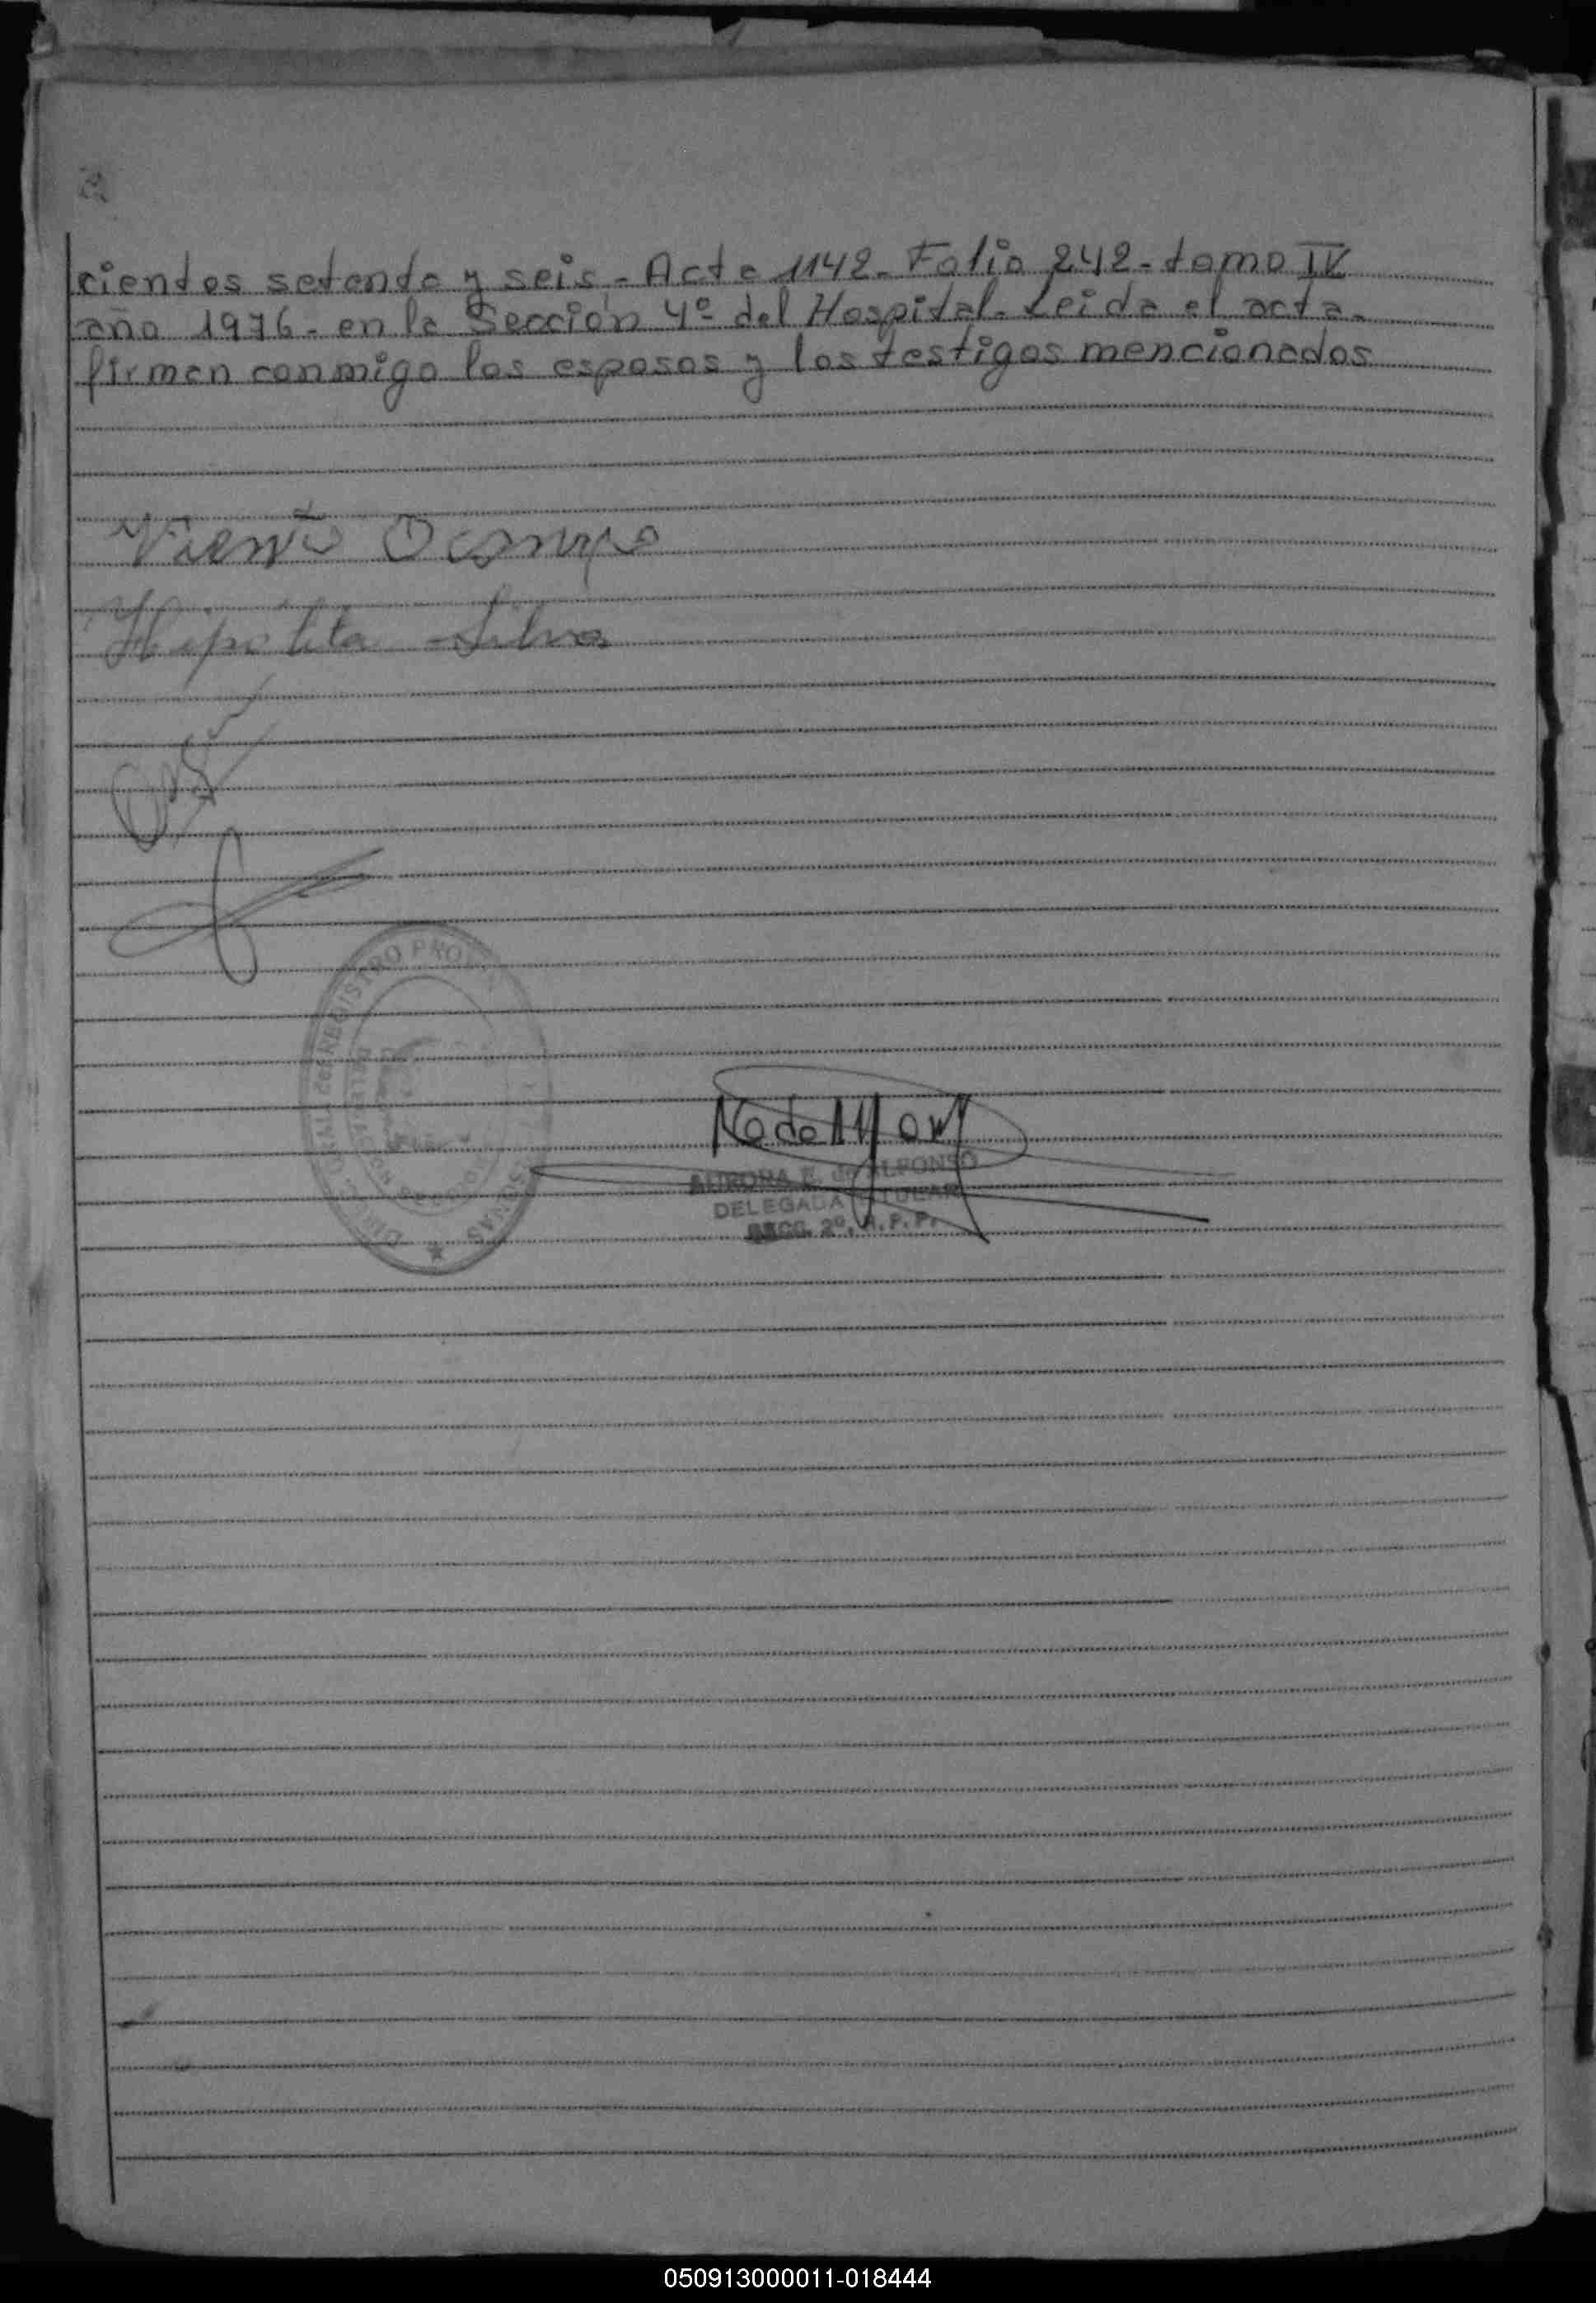 cientos setenta y seis - Acta 1142 - Folio 242 - tomo IV
año 1976 - en la Sección 4º del Hospital. Leida el acta -
firman conmigo los esposos y los testigos mencionados
Vicente Ocampo
Hipolita Silva
REGISTRO
AURORA E. de ALFONSO
DELEGADA TITULAR
SECC. 2º. R. P. P.
050913000011-018444